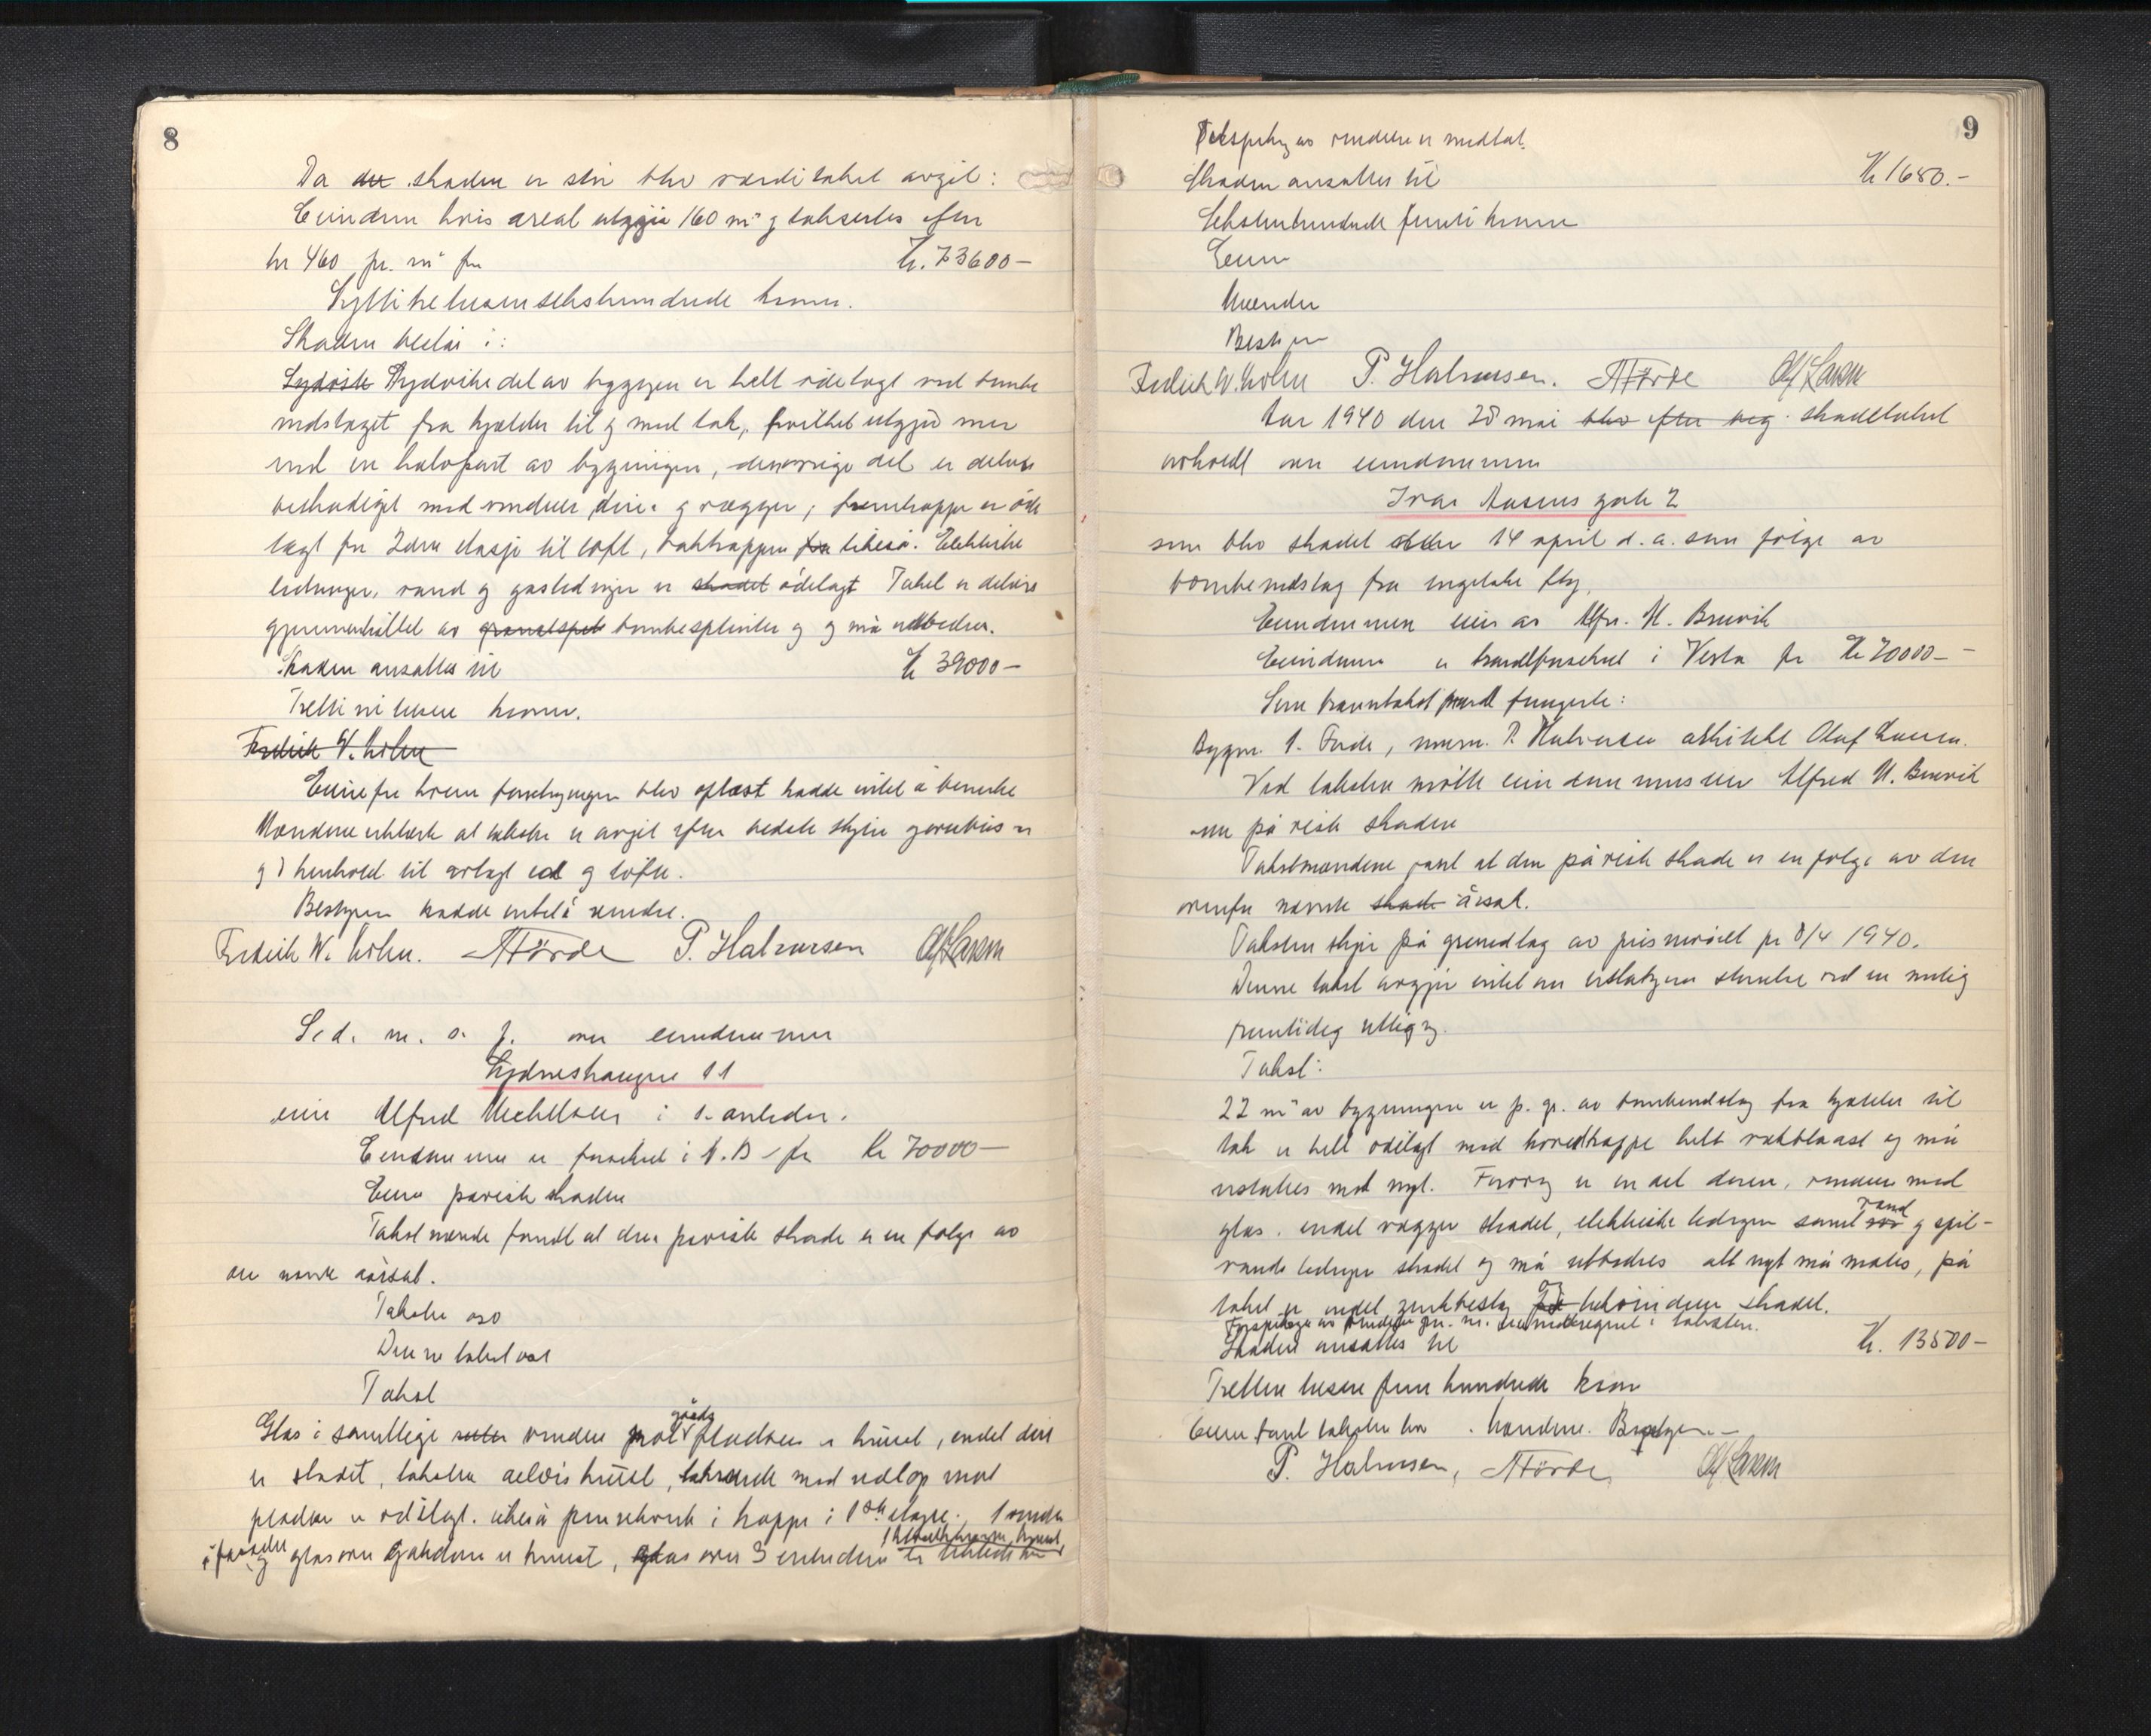 8
Da det skaden er stor blev værditakst avgit:
Eiendom hvis areal utgjør 160 m² og takseres efter
kr 460 pr. m² for Kr. 73600-
Syttitretusensekshundrede kroner.
Skaden består i:
Sydøstr Sydvestre del av bygningen er helt ødelagt ved bombe
nedslaget fra kjælder til og med tak, hvilket utgjør mer
end en halvpart av bygningen, den øvrige del er delvis
beskadiget med vinduer, dører og vægger, trappe er øde
lagt fra 2den etasje til loft, taktrappen fra likeså. Elektriske
ledninger, vand og gasledninger er skadet ødelagt Taket er delvis
gjennemhullet av granatsplt bombesplinter og må utbedres.
Skaden ansættes til Kr 39000-
Trettini tusen kroner.
Fredrik W. Holm
Eier for hvem forretningen blev oplæst hadde intet å bemerke
Mændene erklærte at taksten er avgit efter bedste skjøn
og i henhold til avlagt ed og løfte.
Bestyrer hadde intet å erindre.
Fredrik W. Holm. A Førde P. Halvorsen Olaf Larsen
S. d. m. s. f. over eiendommen
Sydneshaugen 11
eier Alfred Michelsen i s. anledn.
Eiendommen er forsikret i N. B - for Kr 70000-
Eier påviste skaden
Takstmændene fandt at den påviste skade er en følge av
ovennevnte årsak.
Taksten osv
Denne takst osv
Takst
Glas i samtlige ruter vinduer mot gårds pladsen er knust, endel dører
er skadet, taksten delvis knust, takrende med nedløp mot
pladsen er ødelagt. likeså panelverk i trappe i 1ste etasje. 1 vindu
i fasaden og glas over gatedøren er knust, glas over 3
9
av vinduer er medtat.
Skaden ansættes til Kr 1650.-
Sekstenhundrede femti kroner
Eier
Mænder
Bestyrer
Fredrik W. Holm P. Halvorsen. A Førde Olaf Larsen
Aar 1940 den 28 mai blev efter beg. skadetakst
avholdt over eiendommen
Ivar Aasens gate 2
som blev skadet den 14 april d. a. som følge av
bombenedslag fra engelske fly.
Eiendommen eies av Alfr. M. Brevik
Eiendommen er brandforsikret i Vesta for Kr 70000-
Som skjønstakst mænd fungerte:
Bygm. A. Førde, murm. P. Halvorsen arkitekt Olaf Larsen.
Ved taksten møtte eiendommens eier Alfred M. Brevik
som påviste skaden
Takstmændene fandt at den påviste skade er en følge av den
ovenfor nævnte skade årsak.
Taksten skjer på grundlag av prisnivået pr 8/4 1940.
Denne takst avgjør intet om erstatningens størrelse ved en mulig
fremtidig utligng.
Takst:
22 m² av bygningen er p. gr. av bombenedslag fra kjælder til
tak er helt ødelagt med hovedtrappe helt vækblaast og må
erstattes med nyt. Forøvrig er en del dører, vinduer med
glas, endel vægger skadet, elektriske ledninger samt vand og spil-
vands ledninger skadet og må utbedres alt nyt må males, på
taket er endel zinkbeslag og takvinduer skadet.
Skaden ansættes til Kr. 13500-
Tretten tusen fem hundrede kroner
Eier samt taksten . Mændene. Bestyrer -
P. Halvorsen, A Førde, Olaf Larsen